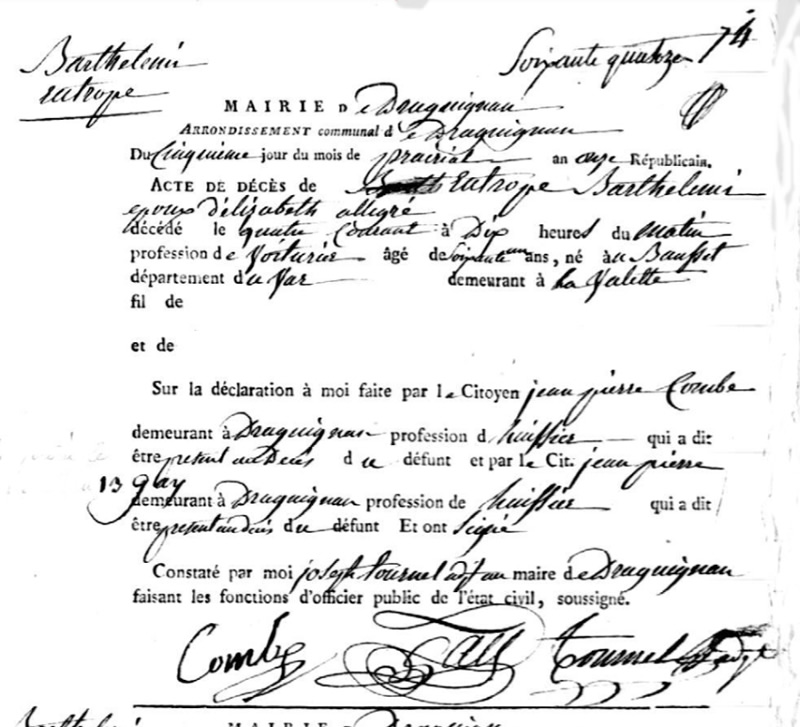 Barthelemi
eutrope
Soixante quatorze 74
MAIRIE De Draguignan
ARRONDISSEMENT communal de Draguignan
Du Cinquieme jour du mois de prairial an onze Républicain.
ACTE DE DÉCÈS de Eutrope Barthelemi
epoux d'élizabeth allegré
décédé le quatre Courant à Dix heures du matin
profession de Voiturier âgé de Soixante un ans, né au Bausset
département du Var demeurant à La Valette
fil de
et de
Sur la déclaration à moi faite par le Citoyen jean pierre Combe
demeurant à Draguignan profession d huissier qui a dit
être present au Deces du défunt et par le Cit. jean pierre
13
demeurant à Draguignan profession de huissier qui a dit
être present au deces du défunt Et ont Signé
Constaté par moi joseph tournel adjt au maire de Draguignan
faisant les fonctions d'officier public de l'état civil, soussigné.
Combe Tournel adjt
Barthelemi MAIRIE De Draguignan